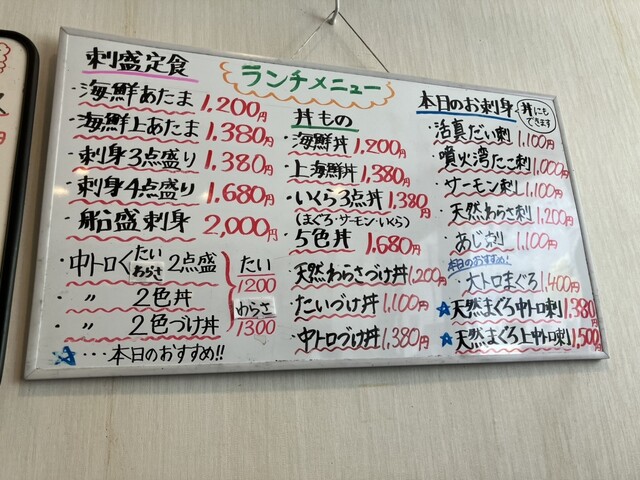 ランチメニュー
刺盛定食
・海鮮あたま 1,200円
・海鮮上あたま 1,380円
・刺身3点盛り 1,380円
・刺身4点盛り 1,680円
・船盛刺身 2,000円
・中トロ たい わらさ 2点盛
・〃 2色丼
・〃 2色づけ丼
たい 1200
わらさ 1300
☆・・・本日のおすすめ!!
丼もの
・海鮮丼 1,200円
・上海鮮丼 1,380円
・いくら3点丼 1,380円
(まぐろ・サーモン・いくら)
・5色丼 1,680円
・天然わらさづけ丼 1,200円
・たいづけ丼 1,100円
・中トロづけ丼 1,380円
本日のお刺身
丼にもできます
・活真だい刺 1,100円
・噴火湾たこ刺 1,000円
・サーモン刺し 1,100円
・天然わらさ刺 1,200円
・あじ刺 1,100円
本日のおすすめ!
・大トロまぐろ 1,400円
☆天然まぐろ中トロ刺 1,380円
☆天然まぐろ上中トロ刺 1,500円